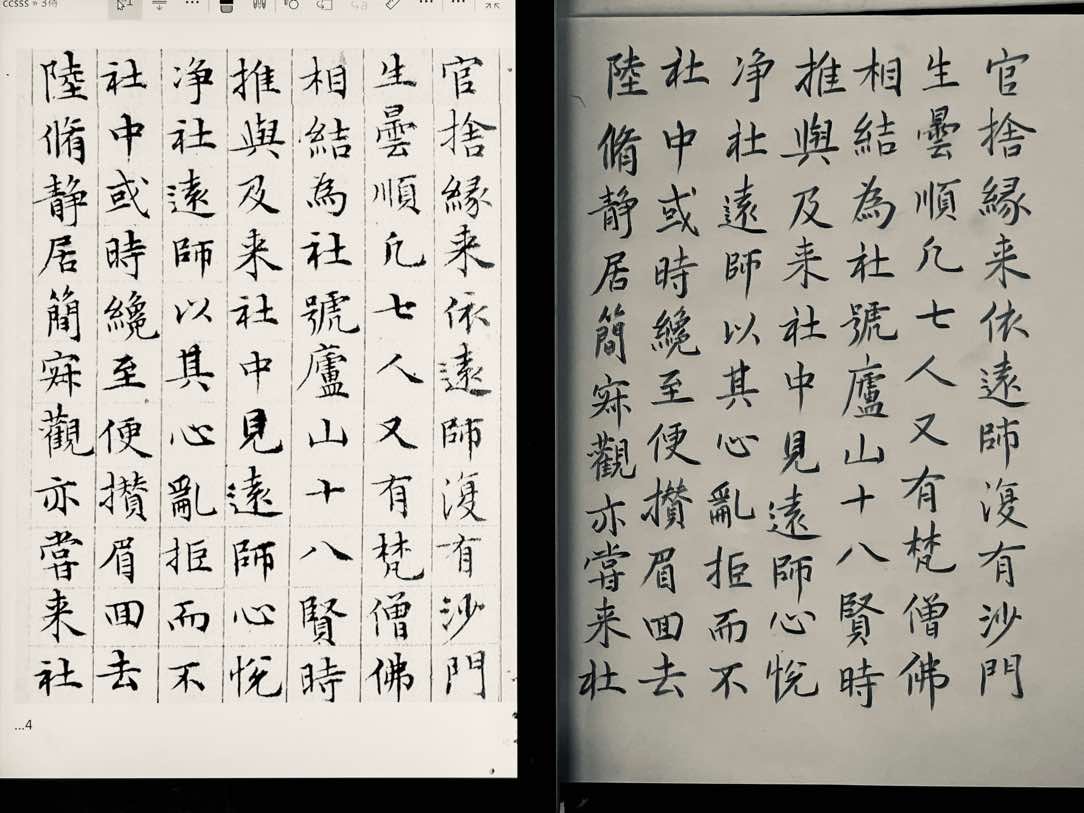 ccsss »
官捨緣来依遠師復有沙門
生曇順凡七人又有梵僧佛
相結為社號廬山十八賢時
推與及来社中見遠師心悅
净社遠師以其心亂拒而不
社中或時纔至便攢眉回去
陸脩静居簡寂觀亦嘗来社
...4
官捨緣来依遠師復有沙門
生曇順凡七人又有梵僧佛
相結為社號廬山十八賢時
推與及来社中見遠師心悅
净社遠師以其心亂拒而不
社中或時纔至便攢眉回去
陸脩静居簡寂觀亦嘗来社